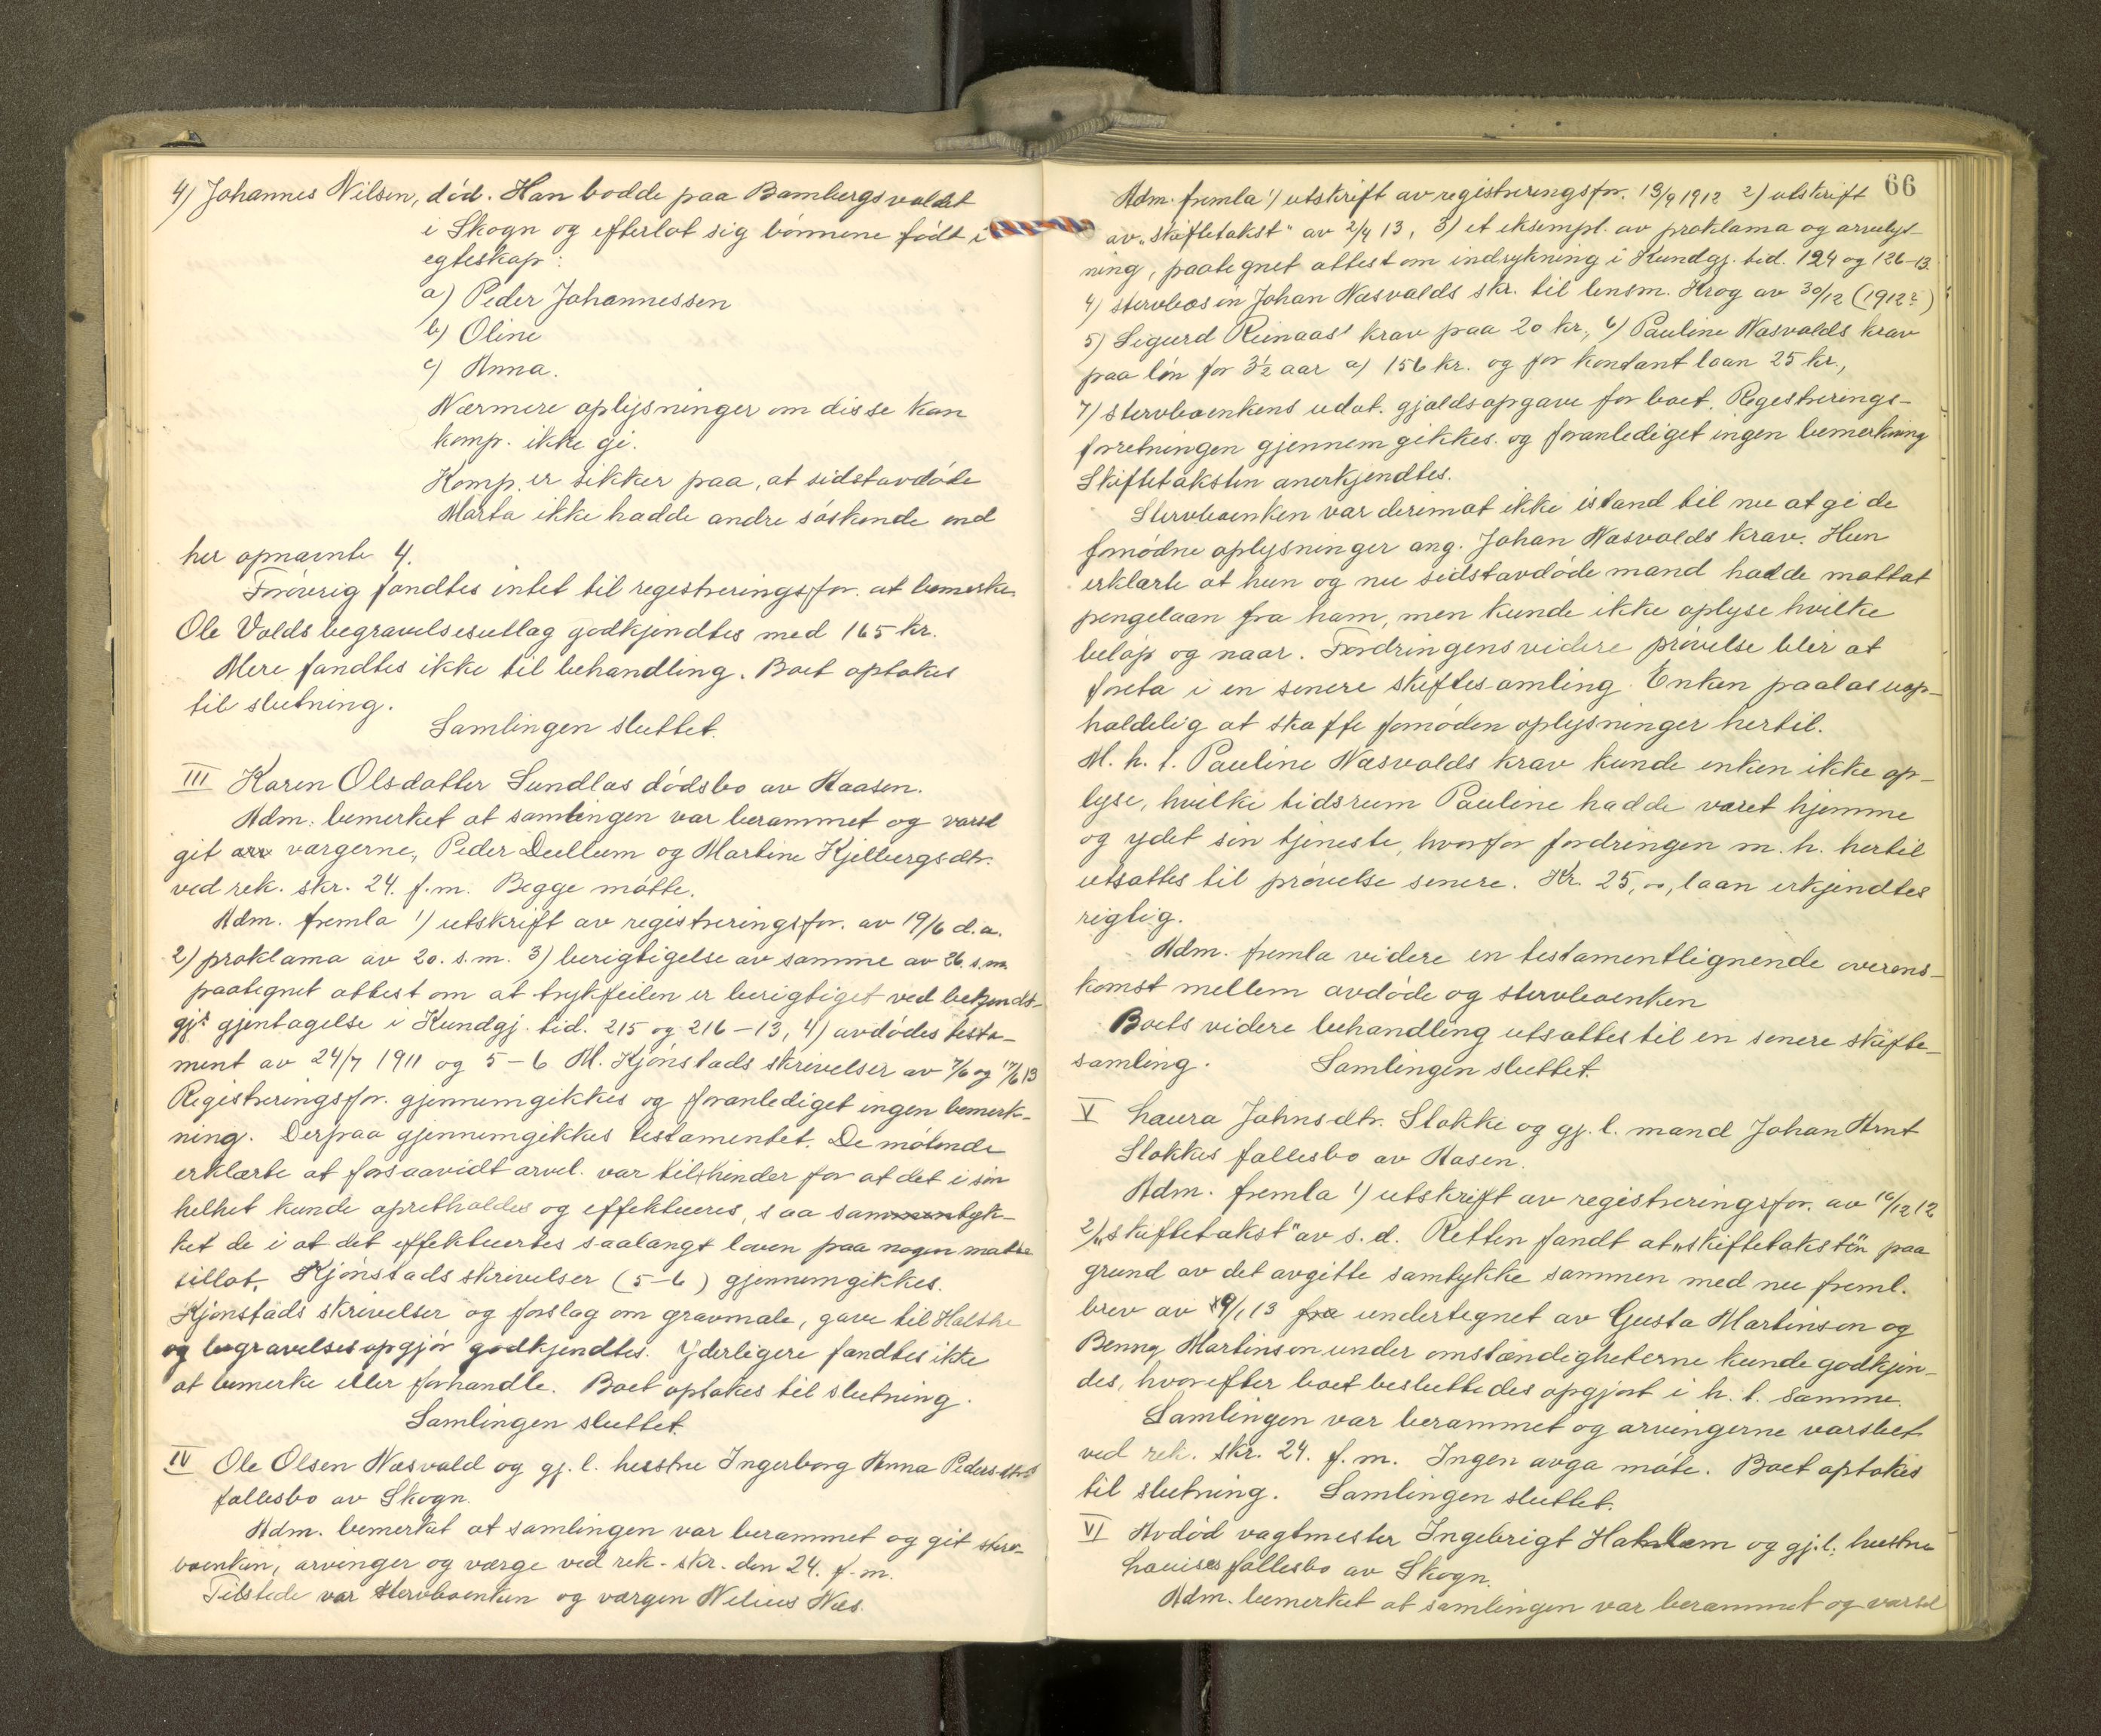 4) Johannes Nilsen, död. Han bodde paa Bambergsvaldet
i Skogn og efterlot sig börnene födt i
egteskap:
a) Peder Johannessen
b) Oline
c) Anna.
Nærmere oplysninger om disse kan
komp. ikke gi.
Komp. er sikker paa, at sidstavdöde
Marta ikke hadde andre söskende end
her opnævnte 4.
Forövrig fandtes intet til registreringsfor. at bemerke.
Ole Volds begravelsesutlag godkjendtes med 165 kr.
Mere fandtes ikke til behandling. Boet optokes
til slutning.
Samlingen sluttet.
III Karen Olsdatter Sundlas dödsbo av Aasen.
Adm. bemerket at samlingen var berammet og varsel
git arv vargerne, Peder Dullum og Martine Kjelbergsdtr.
ved rek. skr. 24. f.m. Begge mötte.
Adm. fremla 1) utskrift av registreringsfor. av 19/6 d.a.
2) proklama av 20. s.m. 3) berigtigelse av samme av 26. s.m.
paategnet attest om at trykfeilen er berigtiget ved bekjendt-
gjs gjentagelse i Kundgj. tid. 215 og 216-13, 4) avdödes testa-
ment av 24/7 1911 og 5-6 M. Kjönstads skrivelser av 7/6 og 17/6 13
Registreringsfor. gjennemgikkes og foranlediget ingen bemerk-
ning. Derpaa gjennemgikkes testamentet. De mötende
erklærte at forsaavidt arvel. var tilhinder for at det i sin
helhet kunde opretholdes og effektueres, saa samtyk-
ket de i at det effektuertes saalangt loven paa nogen maate
tillot. Kjönstads skrivelser (5-6) gjennemgikkes.
Kjönstads skrivelser og forslag om gravmæle, gave til Halthe
og begravelsesopgjör godkjendtes. Yderligere fandtes ikke
at bemerke eller forhandle. Boet optokes til slutning.
Samlingen sluttet.
IV Ole Olsen Næsvald og gj. l. hustru Ingerborg Anna Pedersdtrs
fællesbo av Skogn.
Adm. bemerket at samlingen var berammet og git sterv-
boenken, arvinger og værge ved rek. skr. den 24. f.m.
Tilstede var stervboenken og vargen Nelius Næs.
66
Adm. fremla 1) utskrift av registreringsfor. 13/9 1912 2) utskrift
av "skiftetakst" av 2/4 13, 3) et eksempl. av proklama og arvelys-
ning, paategnet attest om indrykning i Kundgj. tid. 124 og 126-13.
4) stervbosön Johan Næsvalds skr. til lensm. Krog av 30/12 (1912?)
5) Sigurd Reinaas' krav paa 20 kr., 6) Pauline Næsvalds krav
paa lön for 3½ aar a) 156 kr. og for kontant laan 25 kr.,
7) stervboenkens udat. gjældsopgave for boet. Regestrerings-
forretningen gjennemgikkes og foranlediget ingen bemerkning
Skiftetaksten anerkjendtes.
Stervboenken var derimot ikke istand til nu at gi de
fornödne oplysninger ang. Johan Næsvalds krav. Hun
erklærte at hun og nu sidstavdöde mand hadde mottat
pengelaan fra ham, men kunde ikke oplyse hvilke
belöp og naar. Fordringens videre prövelse blir at
foreta i en senere skiftesamling. Enken paalas uop-
holdelig at skaffe fornöden oplysninger hertil.
M. h. t. Pauline Næsvalds krav kunde enken ikke op-
lyse, hvilke tidsrum Pauline hadde været hjemme
og ydet sin tjeneste, hvorfor fordringen m. h. hertil
utsattes til prövelse senere. Kr. 25,00, laan erkjendtes
rigtig.
Adm. fremla videre en testamentlignende overens-
komst mellem avdöde og stervboenken
Boets videre behandling utsattes til en senere skifte-
samling. Samlingen sluttet.
V Laura Johnsdtr. Stokke og gj. l. mand Johan Arnt
Stokkes fællesbo av Aasen.
Adm. fremla 1) utskrift av registreringsfor. av 16/12 12
2) "skiftetakst" av s. d. Retten fandt at "skiftetaksten" paa
grund av det avgitte samtykke sammen med nu freml.
brev av 19/1 13 fra undertegnet av Gusta Martinson og
Benny Martinson under omstændigheterne kunde godkjen-
des, hvorefter boet besluttedes opgjort i h. t. samme.
Samlingen var berammet og arvingerne varslet
ved rek. skr. 24. f. m. Ingen avga möte. Boet optokes
til slutning. Samlingen sluttet.
VI Avdöd vagtmester Ingebrigt Hahlem og gj. l. hustru
Louises fællesbo av Skogn.
Adm. bemerket at samlingen var berammet og varsel